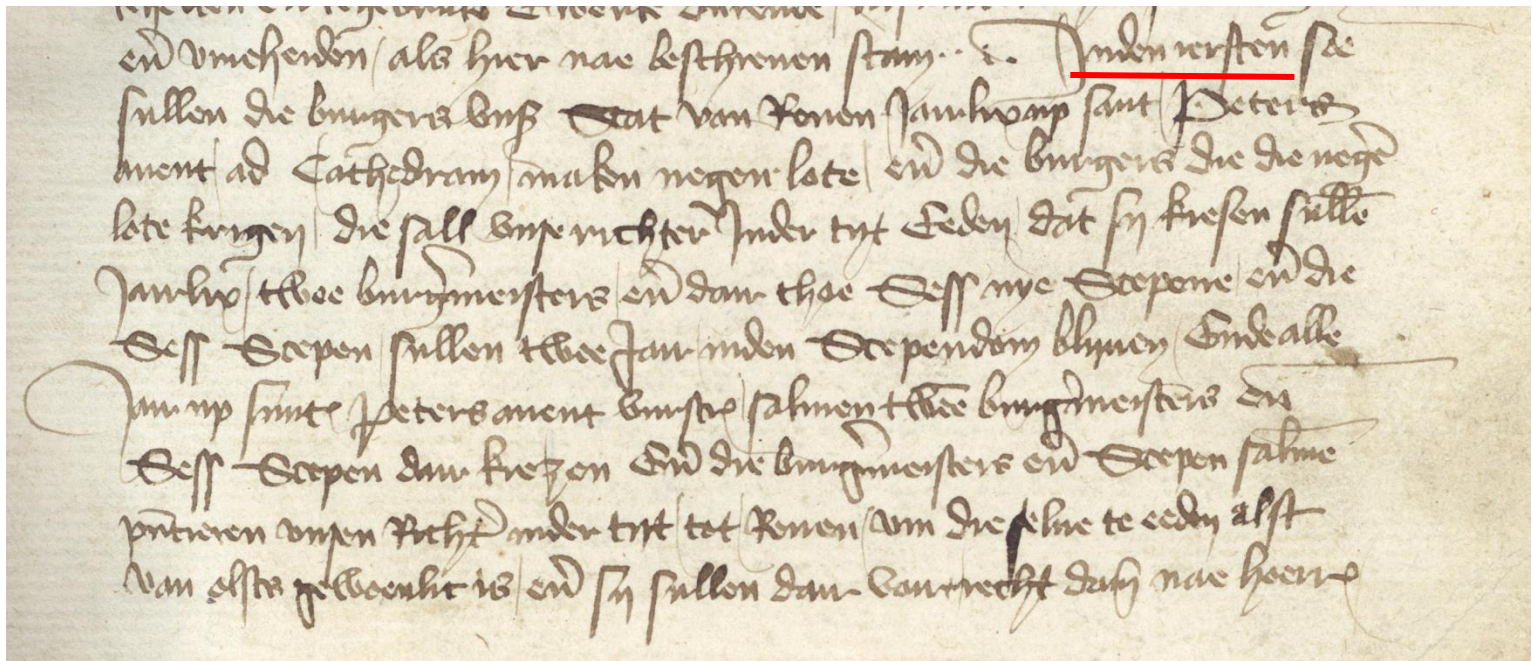 en̄ vrieheiden / als hier nae beschreuen stain Inden iersten soe
sullen die burgers vnß Stat van Renen Jairlix up sant Peters
auent ad Cathedram / maken negen lote / en̄ die burgers die die negē
lote krigen / die sall vnse richter Inder tyt Eeden / dat sy kiesen sullē
Jairlix / twee burgermeisters / en̄ dair thoe Sess nye Scepene / en̄ die
Sess Scepen / sullen twee Jair inden Scependom blyuen / Ende alle
Jair up sunte Peters auent vurscr / salmen twee burgermeisters en̄
Sess Scepen dair kiezen En̄ die burgermeisters en̄ Scepen salmē
pn̄tieren vnsen Richter inder tyt / tot Renen / vm die selue te eeden alst
van olts gewoenlic is / en̄ sy sullen dair vair recht dair nae hoerre